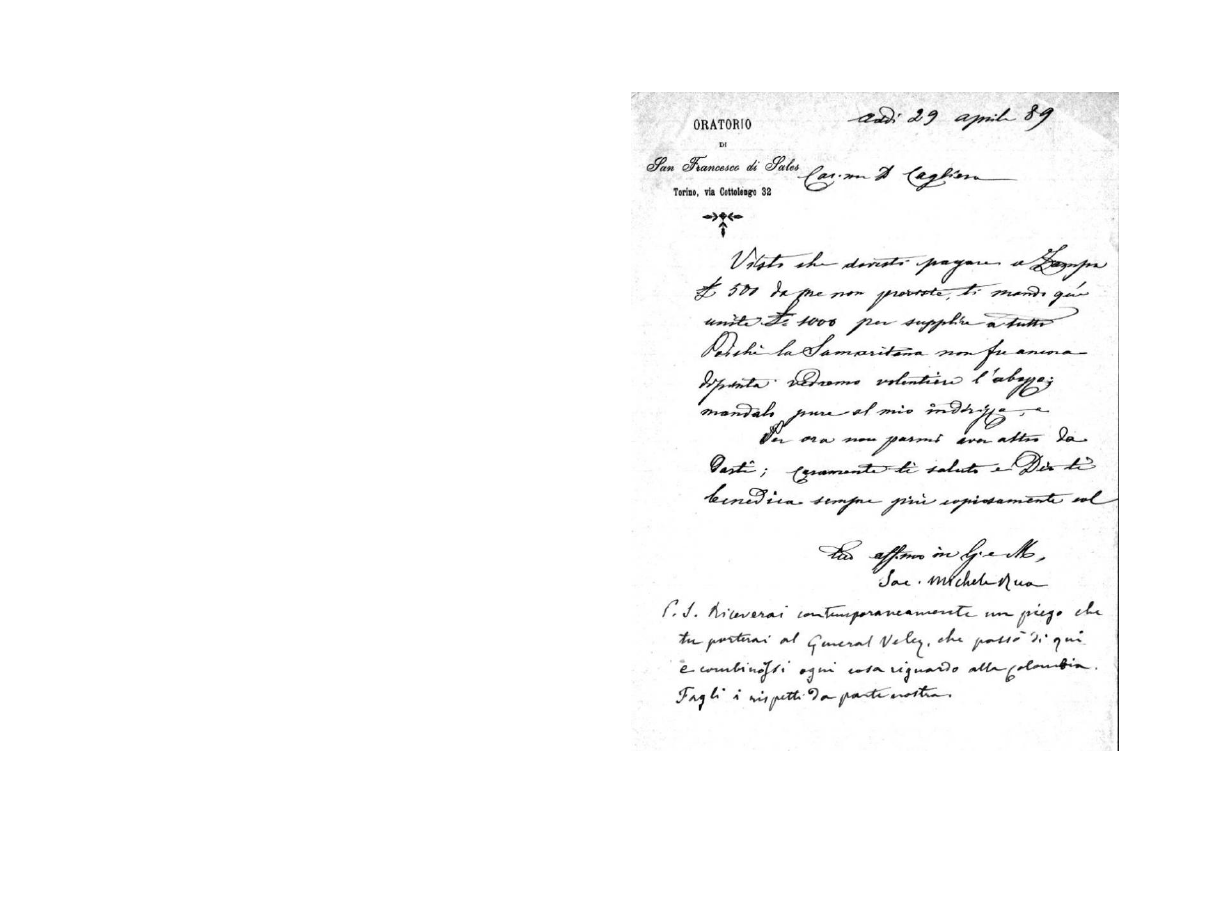 ORATORIO
DI
San Francesco di Sales
Torino, via Cottolengo 32
addì 29 aprile 89
Car.mo D Cagliero
Visto che dovesti pagare a Zampa
£ 500 da me non previste, ti mando quì
unite £ 1000 per supplire a tutto
Poichè la Samaritana non fu ancora
dipinta vedremo volentieri l'abozzo;
mandalo pure al mio indirizzo
Per ora non parmi aver altro da
darti; caramente ti saluto e Dio ti
benedica sempre più copiosamente col
Tuo aff.mo in G. e M,
Sac. Michele Rua
P. S. Riceverai contemporaneamente un piego che
tu porterai al General Velez, che passò di quì
e combinossi ogni cosa riguardo alla Colombia.
Fagli i rispetti da parte nostra.